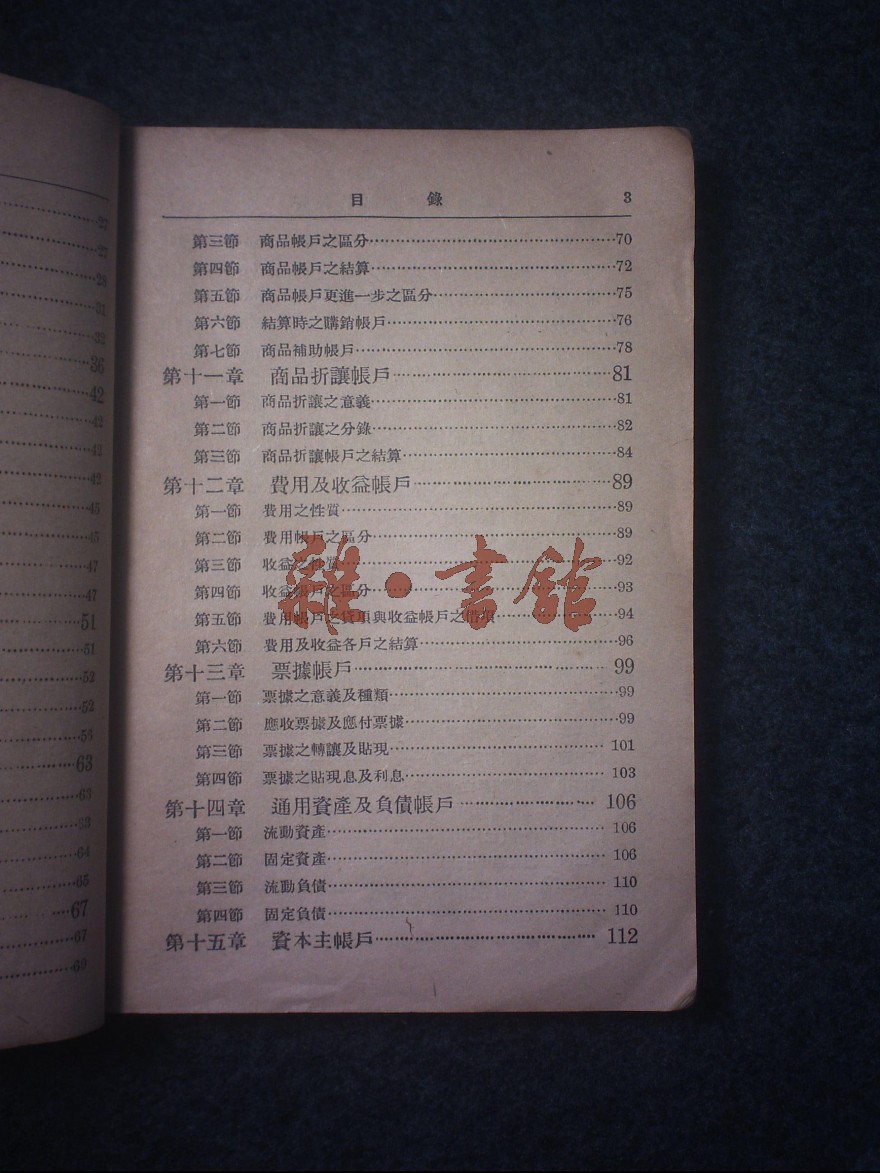 目 錄 3
第三節 商品帳戶之區分……70
第四節 商品帳戶之結算……72
第五節 商品帳戶更進一步之區分……75
第六節 結算時之購銷帳戶……76
第七節 商品補助帳戶……78
第十一章 商品折讓帳戶……81
第一節 商品折讓之意義……81
第二節 商品折讓之分錄……82
第三節 商品折讓帳戶之結算……84
第十二章 費用及收益帳戶……89
第一節 費用之性質……89
第二節 費用帳戶之區分……89
第三節 收益之性質……92
第四節 收益帳戶之區分……93
第五節 費用帳戶之貸項與收益帳戶之借項……94
第六節 費用及收益各戶之結算……96
第十三章 票據帳戶……99
第一節 票據之意義及種類……99
第二節 應收票據及應付票據……99
第三節 票據之轉讓及貼現……101
第四節 票據之貼現息及利息……103
第十四章 通用資產及負債帳戶……106
第一節 流動資產……106
第二節 固定資產……106
第三節 流動負債……110
第四節 固定負債……110
第十五章 資本主帳戶……112
雜·書館
27
28
31
32
36
42
42
42
42
45
45
47
47
51
51
52
52
53
63
63
63
64
65
67
67
69